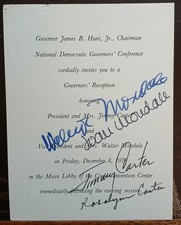 Governor James B. Hunt, Jr., Chairman
National Democratic Governors' Conference
cordially invites you to a
Governors' Reception
honoring
President and Mrs. Jimmy Carter
Walter Mondale
Joan Mondale
and
Vice President and Mrs. Walter Mondale
on Friday, December 8, 1978
Jimmy Carter
in the Main Lobby of the Convention Center
immediately following the evening session
Rosalynn Carter